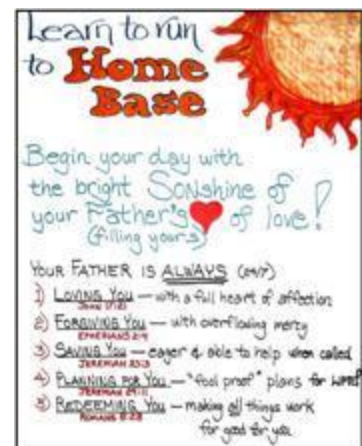 Learn to run
to Home
Base
Begin your day with
the bright SONshine of
your Father's of love!
(filling yours)
YOUR FATHER IS ALWAYS (24/7)
1) LOVING YOU — with a full heart of affection
JOHN 17:21
2) FORGIVING YOU — with overflowing mercy
EPHESIANS 2:4
3) SAVING YOU — eager & able to help when called
JEREMIAH 33:3
4) PLANNING FOR YOU — "fool proof" plans for
JEREMIAH 29:11
5) REDEEMING YOU — making all things work
ROMANS 8:28
for good for you.